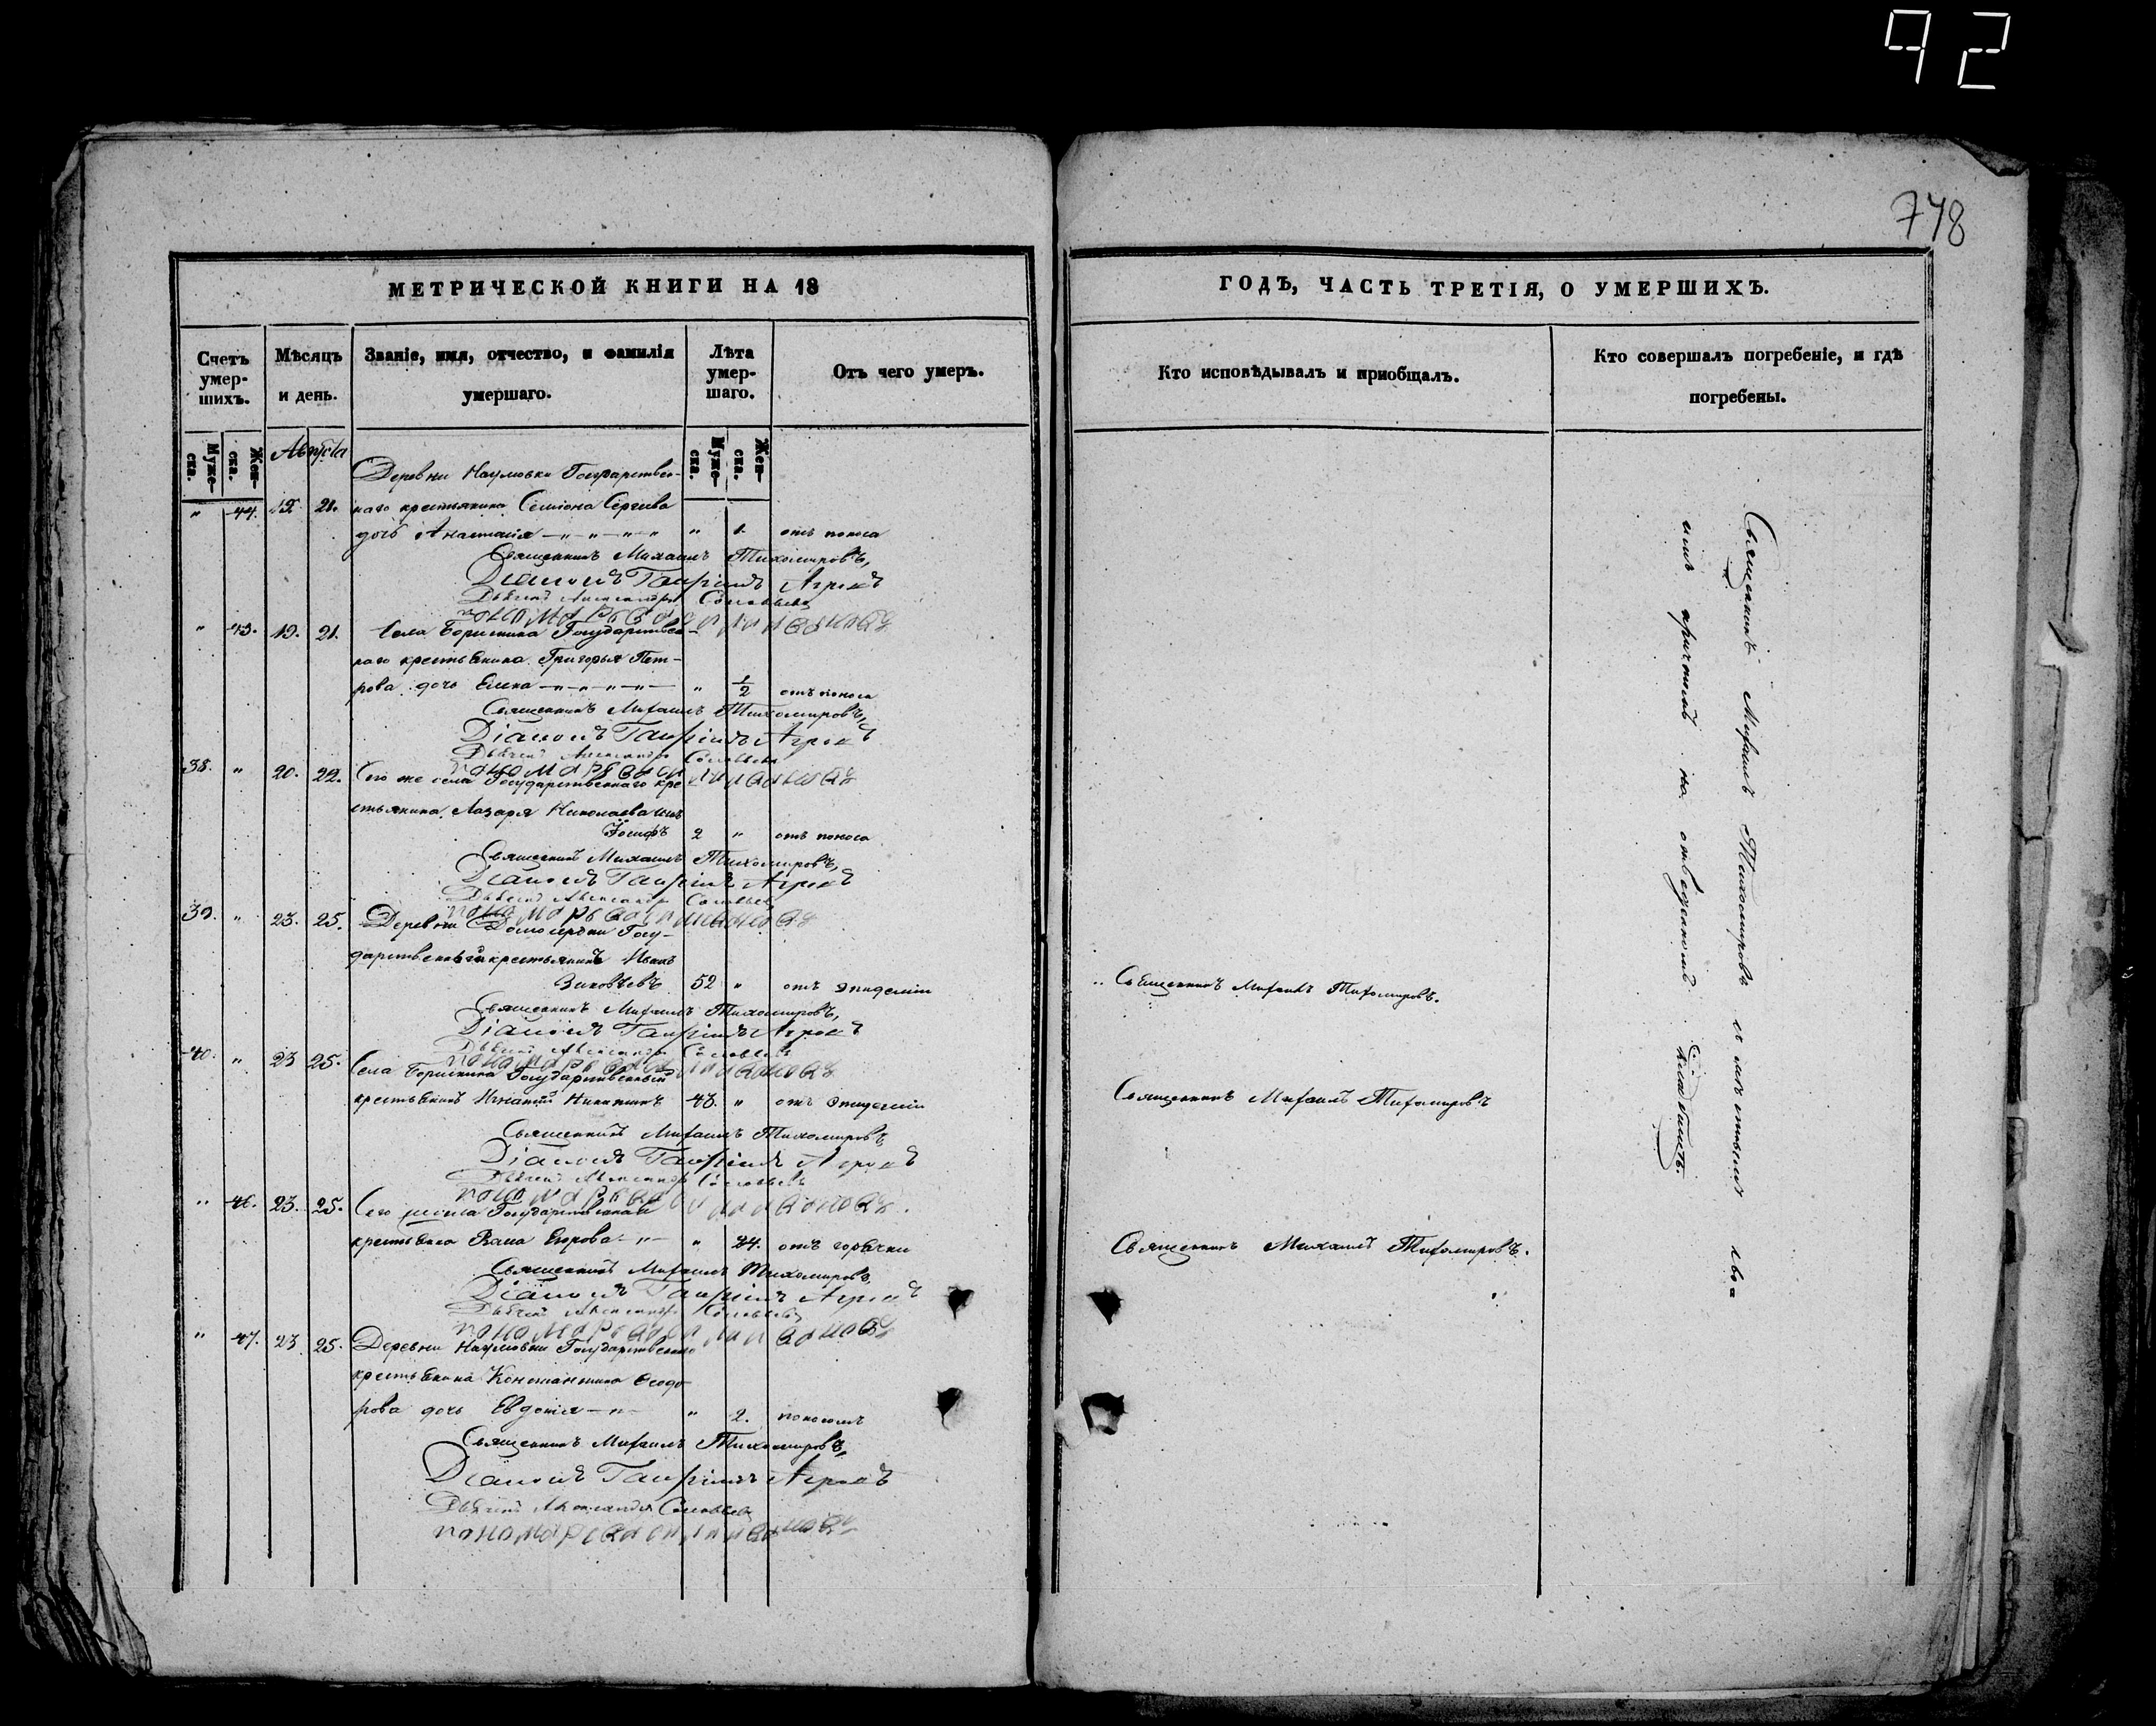 92
778
МЕТРИЧЕСКОЙ КНИГИ НА 18
ГОДЪ, ЧАСТЬ ТРЕТІЯ, О УМЕРШИХЪ.
Счетъ умер-шихъ.
Мѣсяцъ и день.
Званіе, имя, отчество, и фамилія умершаго.
Лѣта умер-шаго.
Отъ чего умеръ.
Кто исповѣдывалъ и приобщалъ.
Кто совершалъ погребеніе, и гдѣ погребены.
Муже-ска.
Жен-ска.
Муже-ска.
Жен-ска.
Августа
Деревни Наумовки Государствен-
" 44. 19. 21. наго крестьянина Семіона Сергѣева
дочь Анастасія " 1. отъ поноса
Священникъ Михаилъ Тихомировъ,
Діаконъ Гавріилъ
Дьячекъ Александръ Соловьевъ
Пономарь
" 45. 19. 21. Села Борискина Государствен-
наго крестьянина Григорья Пет-
рова дочь Елена " 1/2 отъ поноса
Священникъ Михаилъ Тихомировъ,
Діаконъ Гавріилъ
Дьячекъ Александръ Соловьевъ
Пономарь
38. " 20. 22. Сего же села Государственнаго кре
стьянина Лазаря Николаева сынъ
Іосифъ 2 " отъ поноса
Священникъ Михаилъ Тихомировъ,
Діаконъ Гавріилъ
Дьячекъ Александръ Соловьевъ
Пономарь
39. " 23. 25. Деревни Госу-
дарственный крестьянинъ Иванъ
Зиновьевъ 52 " отъ эпидеміи
Священникъ Михаилъ Тихомировъ.
Священникъ Михаилъ Тихомировъ,
Діаконъ Гавріилъ
Дьячекъ Александръ Соловьевъ
Пономарь
40. " 23 25. Села Борискина Государственный
крестьянинъ Игнатій Никитинъ 43. " отъ эпидеміи
Священникъ Михаилъ Тихомировъ
Священникъ Михаилъ Тихомировъ
Діаконъ Гавріилъ
Дьячекъ Александръ Соловьевъ
Пономарь
" 46. 23. 25. Сего села Государственная
крестьянка Егорова " 24. отъ горячки
Священникъ Михаилъ Тихомировъ.
Священникъ Михаилъ Тихомировъ
Діаконъ Гавріилъ
Дьячекъ Александръ Соловьевъ
Пономарь
" 47. 23 25. Деревни Наумовки Государственнаго
крестьянина Константина Ѳеодо
рова дочь Евдокія " 2. поносомъ
Священникъ Михаилъ Тихомировъ,
Діаконъ Гавріилъ
Дьячекъ Александръ Соловьевъ
Пономарь
Священникъ Михаилъ Тихомировъ съ мѣстнымъ сво
имъ причтомъ на отведенномъ кладбищѣ.